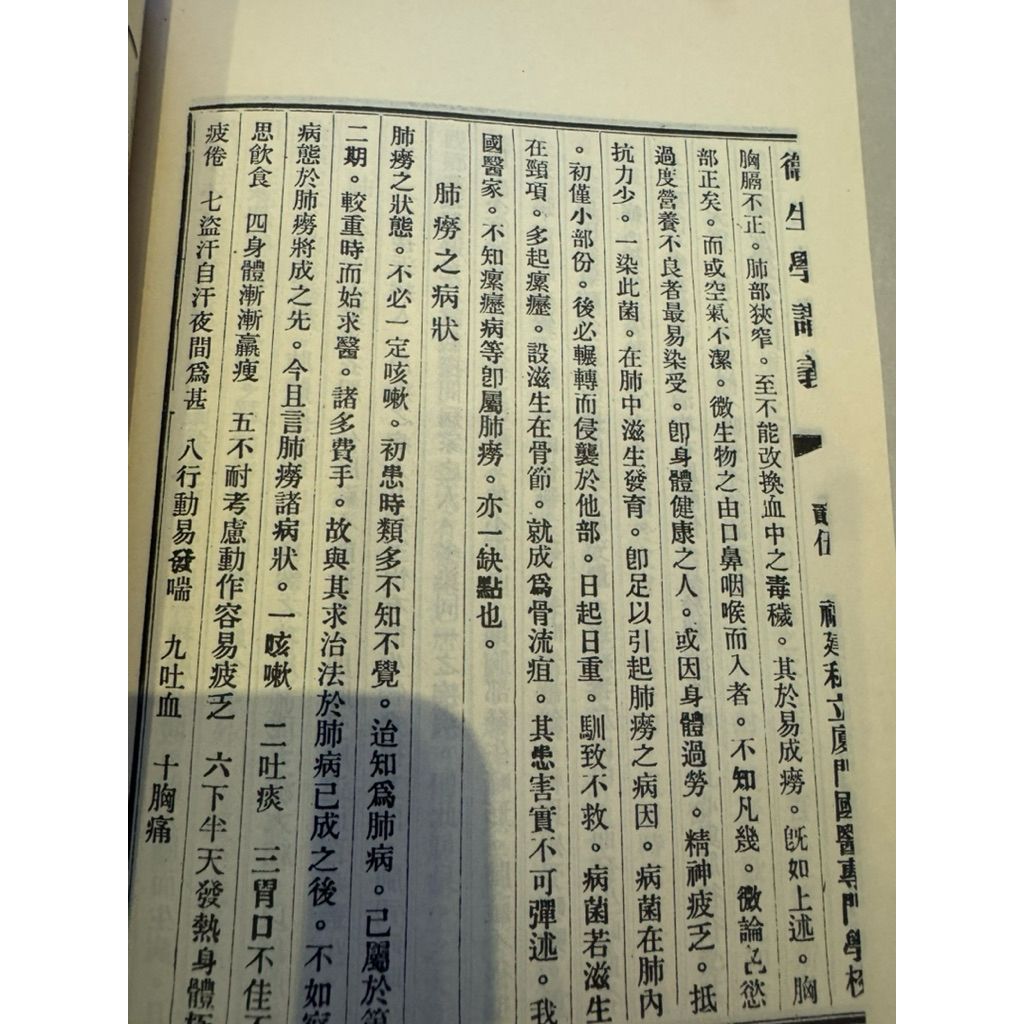 衛生學講義
福建私立廈門國醫專門學校
胸膈不正。肺部狹窄。至不能改換血中之毒穢。其於易成癆。旣如上述。胸
部正矣。而或空氣不潔。微生物之由口鼻咽喉而入者。不知凡幾。微論色慾
過度營養不良者最易染受。卽身體健康之人。或因身體過勞。精神疲乏。抵
抗力少。一染此菌。在肺中滋生發育。卽足以引起肺癆之病因。病菌在肺內
。初僅小部份。後必輾轉而侵襲於他部。日起日重。馴致不救。病菌若滋生
在頸項。多起瘰癧。設滋生在骨節。就成爲骨流疽。其患害實不可殫述。我
國醫家。不知瘰癧病等卽屬肺癆。亦一缺點也。
肺癆之病狀
肺癆之狀態。不必一定咳嗽。初患時類多不知不覺。迨知爲肺病。已屬於第
二期。較重時而始求醫。諸多費手。故與其求治法於肺病已成之後。不如察
病態於肺癆將成之先。今且言肺癆諸病狀。一咳嗽 二吐痰 三胃口不佳不
思飲食 四身體漸漸羸瘦 五不耐考慮動作容易疲乏 六下半天發熱身體
疲倦 七盜汗自汗夜間爲甚 八行動易發喘 九吐血 十胸痛